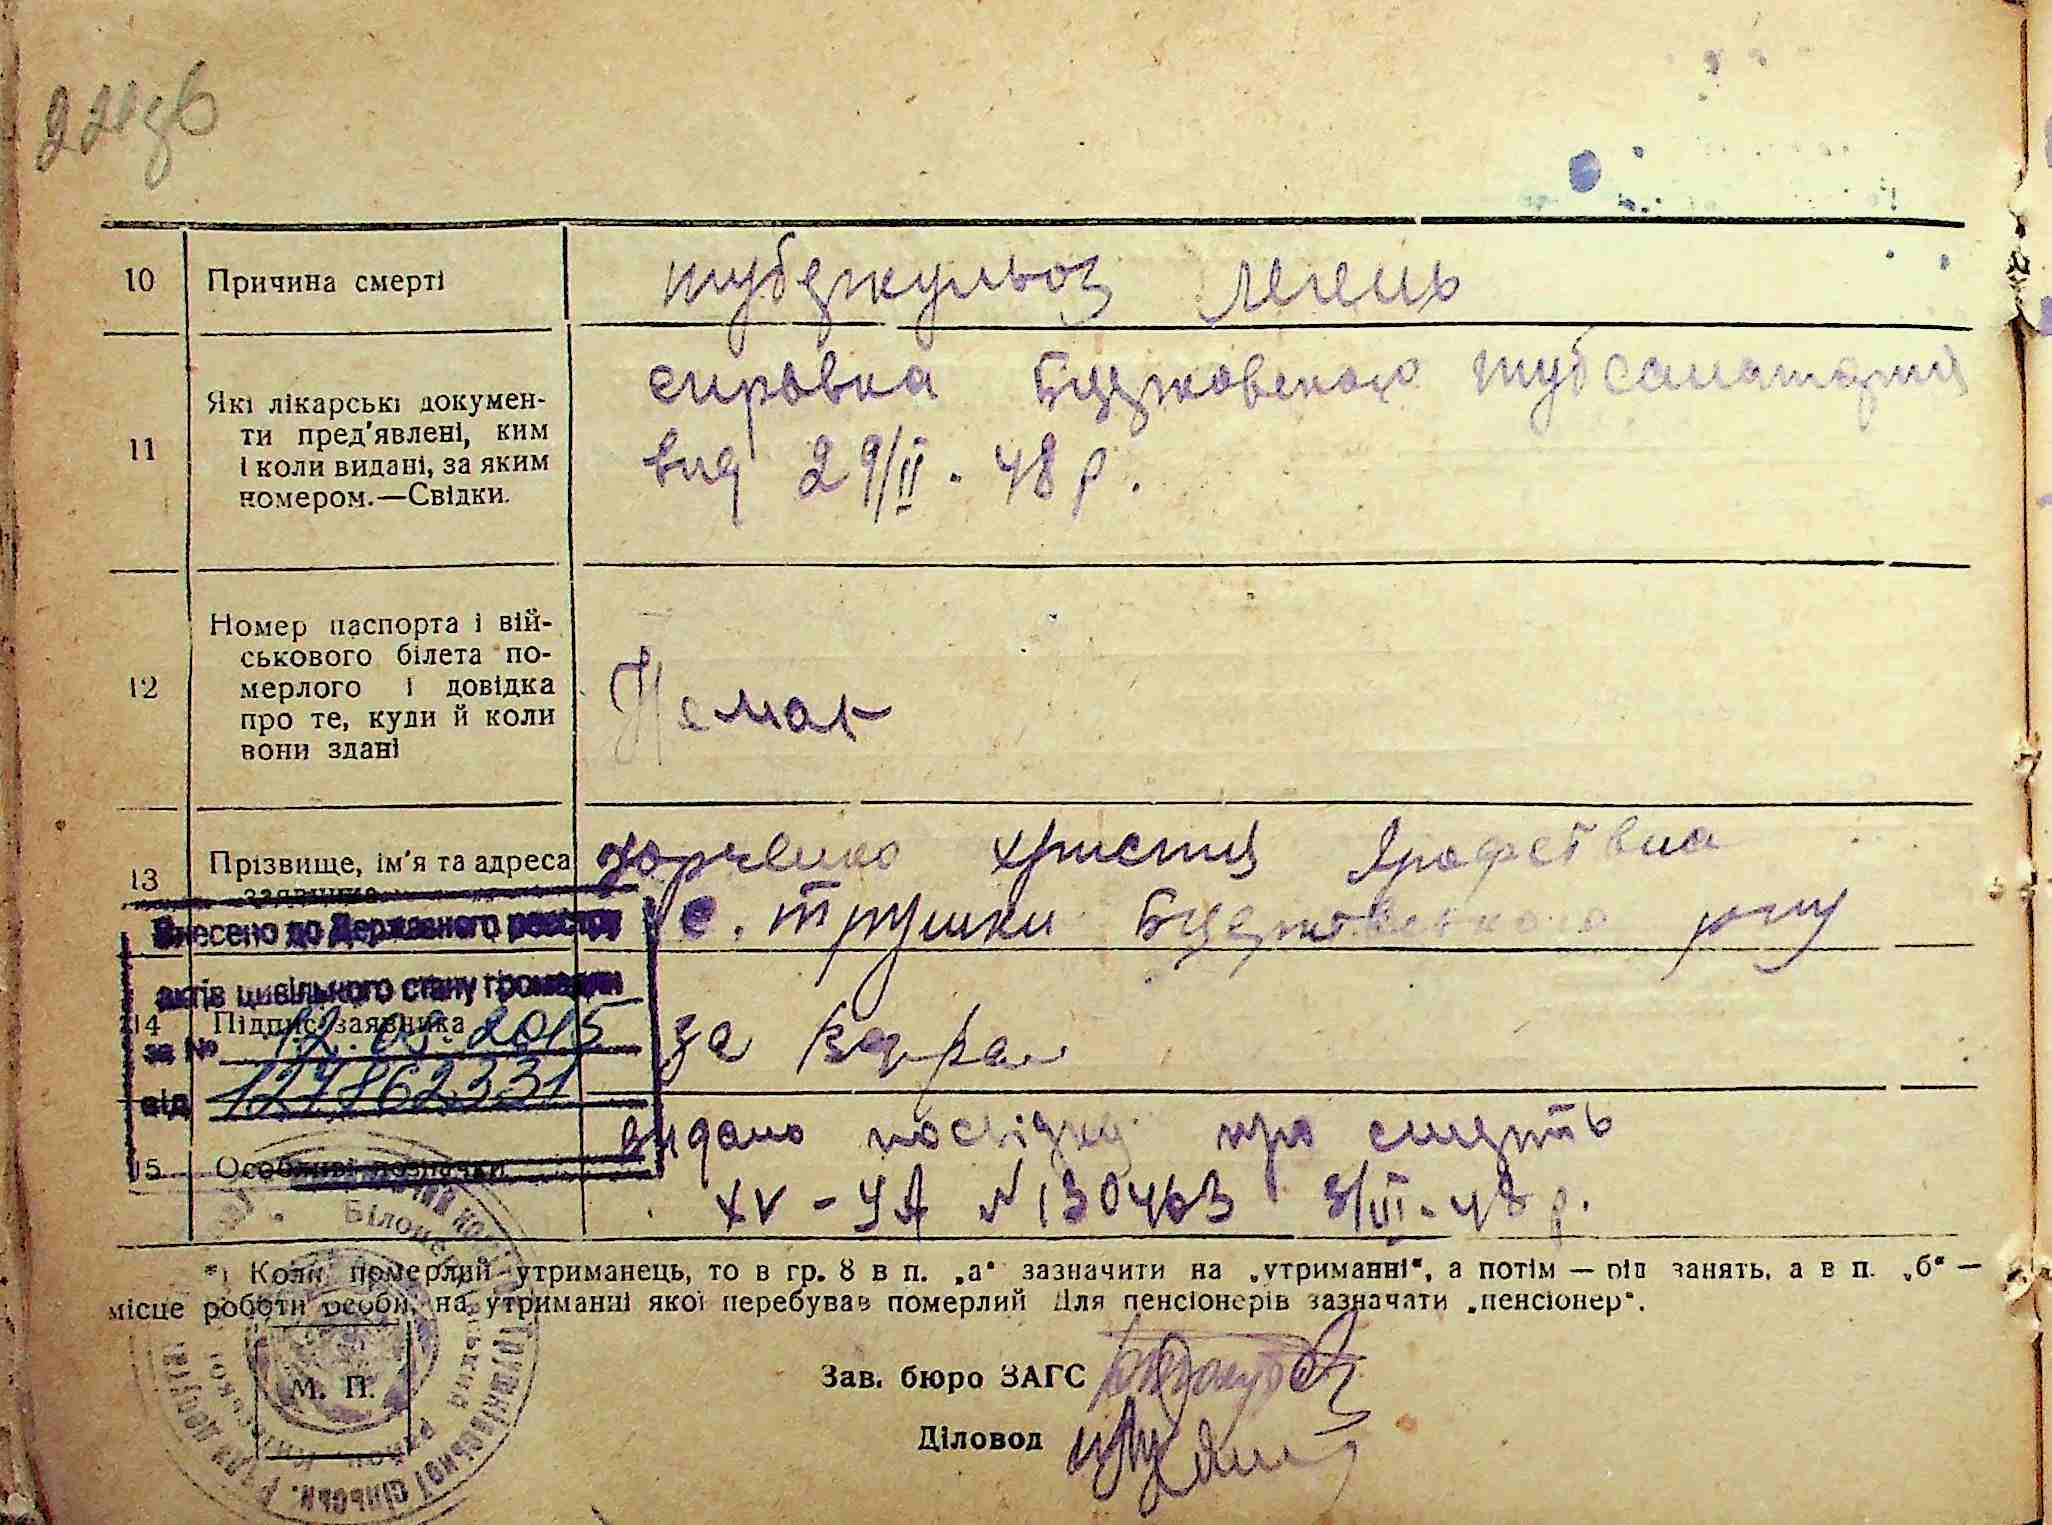 22 зв
10 Причина смерті туберкульоз легень
11 Які лікарські докумен-
ти пред'явлені, ким
і коли видані, за яким
номером.—Свідки.
справка Бужовського тубсанатория
вид 29/II. 48 р.
12 Номер паспорта і вій-
ськового білета по-
мерлого і довідка
про те, куди й коли
вони здані
Немає
13 Прізвище, ім'я та адреса
заявника
Христия
с. Трушки р-ну
Внесено до Державного реєстру
актів цивільного стану громадян
за № 12.03.2015
від 127862331
14 Підпис заявника за
15 Особливі позначки видано посвідку про смерть
XV - УА № 130463 3/III - 48 р.
*) Коли померлий утриманець, то в гр. 8 в п. „а“ зазначити на „утриманні“, а потім — рід занять, а в п. „б“ —
місце роботи особи, на утриманні якої перебував померлий Для пенсіонерів зазначати „пенсіонер“.
М. П.
Зав. бюро ЗАГС
Діловод
Трушківської сільськ. ради депутатів
Білоцерківська район. Київської